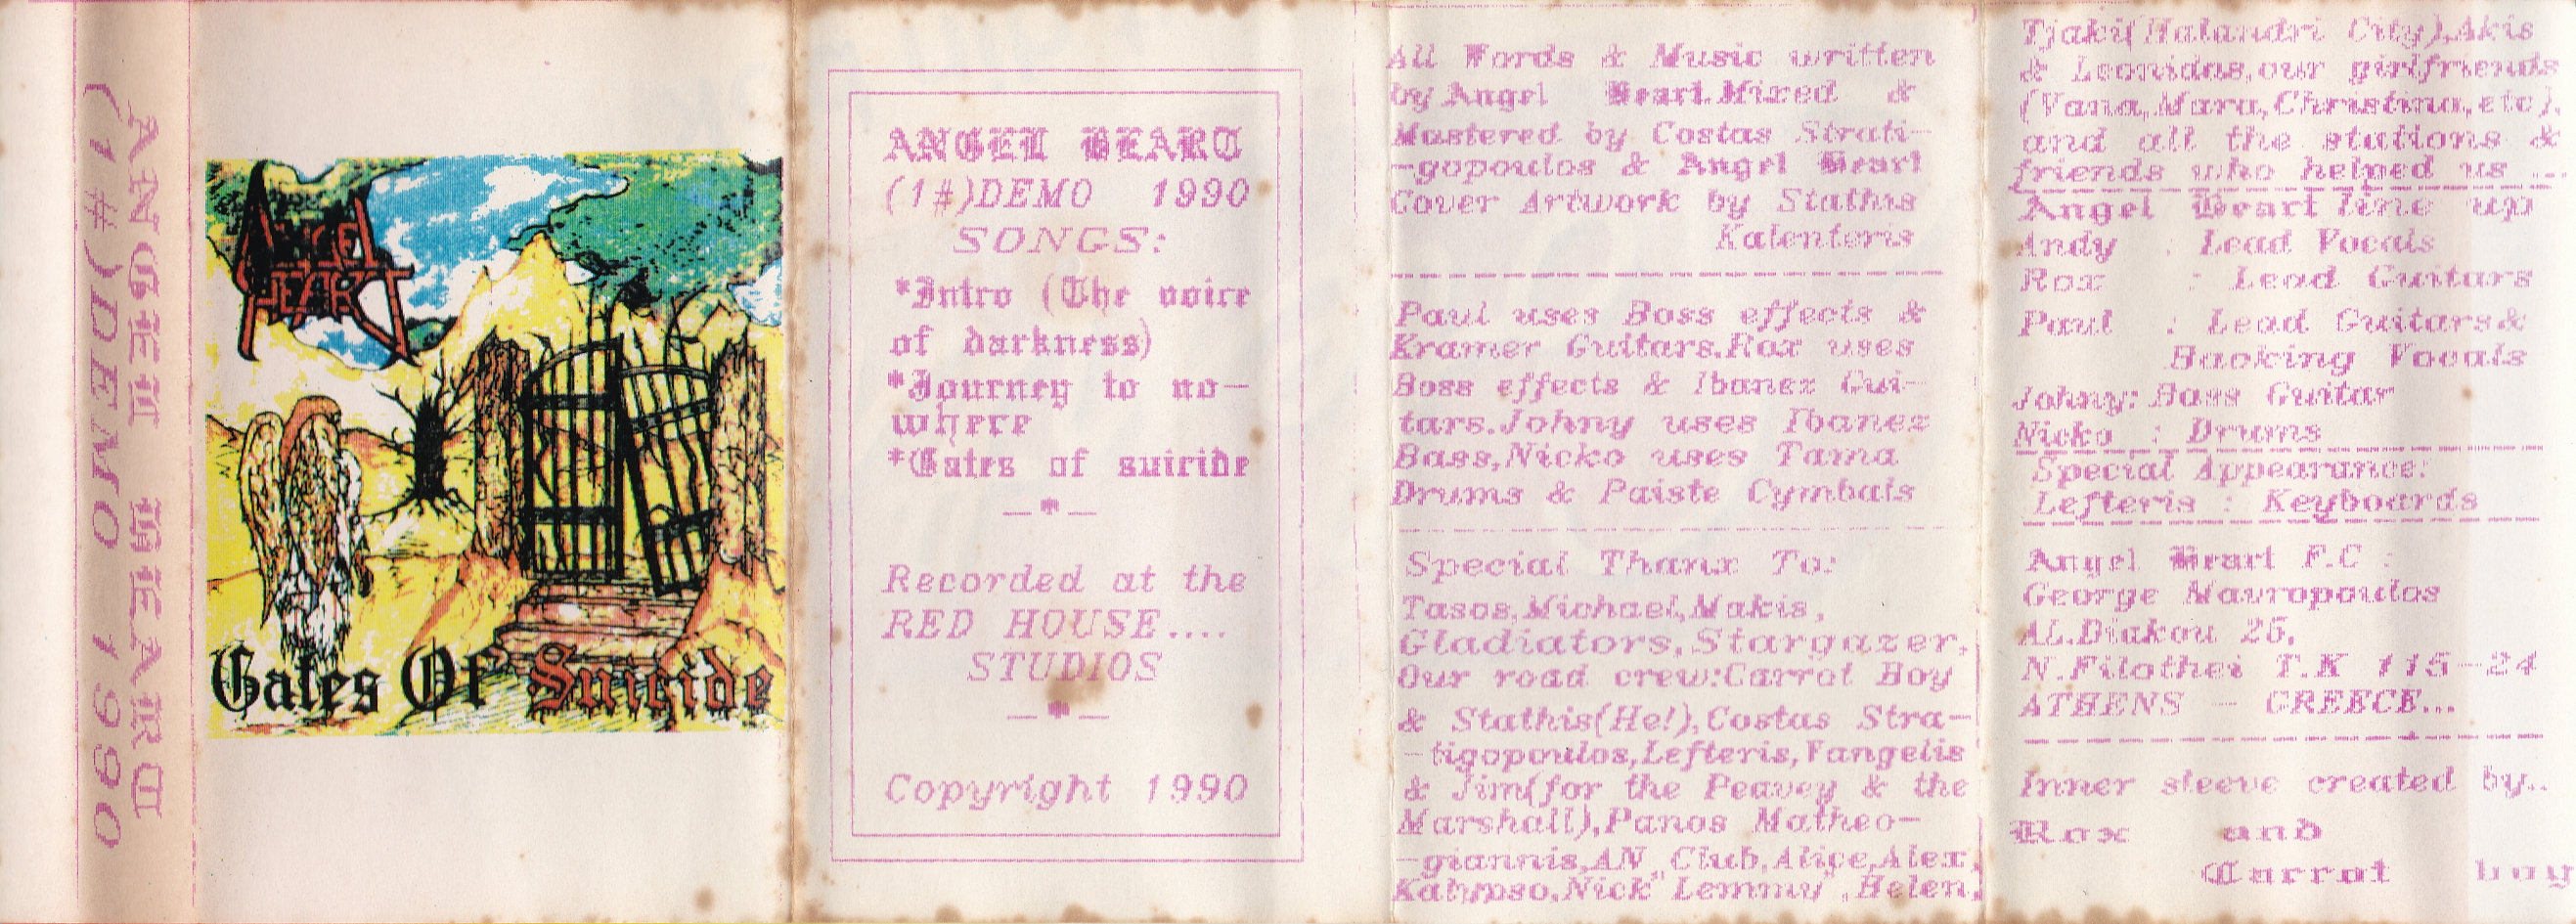 ANGEL HEART
(1#)DEMO 1990
ANGEL HEART
Gates Of Suicide
ANGEL HEART
(1#)DEMO 1990
SONGS:
*Intro (The voice
of darkness)
*Journey to no-
where
*Gates of suicide
-*-
Recorded at the
RED HOUSE....
STUDIOS
-*-
Copyright 1990
All Words & Music written
by Angel Heart.Mixed &
Mastered by Costas Strati-
-gopoulos & Angel Heart
Cover Artwork by Stathis
Kalenteris
Paul uses Boss effects &
Kramer Guitars.Rox uses
Boss effects & Ibanez Gui-
tars.Johny uses Ibanez
Bass,Nicko uses Tama
Drums & Paiste Cymbals
Special Thanx To:
Tasos,Michael,Makis,
Gladiators,Stargazer,
Our road crew:Carrot Boy
& Stathis(He!),Costas Stra-
-tigopoulos,Lefteris,Vangelis
& Jim(for the Peavey & the
Marshall),Panos Matheo-
-giannis,AN Club,Alice,Alex,
Kalypso,Nick"Lemmy",Helen,
Tjaki(Halandri City),Akis
& Leonidas,our girlfriends
(Vana,Mara,Christina,etc),
and all the stations &
friends who helped us ...
Angel Heart line up
Andy : Lead Vocals
Rox : Lead Guitars
Paul : Lead Guitars&
Backing Vocals
Johny: Bass Guitar
Nicko : Drums
Special Appearance:
Lefteris : Keyboards
Angel Heart F.C :
George Mavropoulos
AL.Diakou 25,
N.Filothei T.K 115-24
ATHENS - GREECE...
Inner sleeve created by..
Rox and
Carrot boy